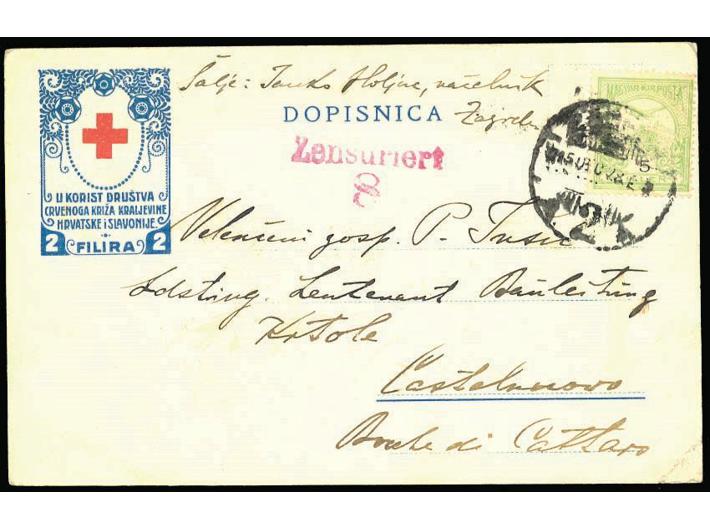 Šalje: Janko Holjac, načelnik
Zagreb
DOPISNICA
MAGYAR KIR. POSTA
Zensuriert
U KORIST DRUŠTVA
CRVENOGA KRIŽA KRALJEVINE
HRVATSKE I SLAVONIJE
2 FILIRA 2
Velecijeni gosp. P. Tusić
Lieutenant Bauleitung
Krtole
Castelnuovo
Bocche di Cattaro